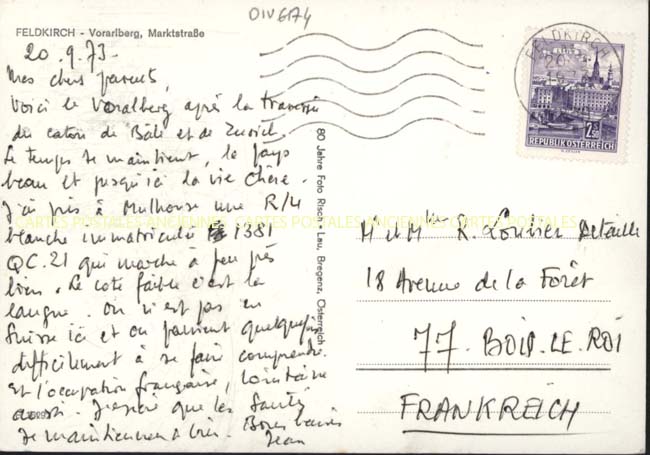 OIV6174
FELDKIRCH - Vorarlberg, Marktstraße
20.9.73
Mes chers parents,
Voici le Voralberg après la traversée
du caton de Bâle et de Zurich.
Le temps se maintient, le pays
beau et jusqu'ici la vie chère.
J'ai pris à Mulhouse une R/4
blanche immatriculée 1381
QC.21 qui marche à peu près
bien. Le coté faible c'est la
langue. On n'est pas en
Suisse ici et on parvient quelquefois
difficilement à se faire comprendre.
Et l'occupation française, lointaine
aussi. J'espère que les Santés
se maintiennent à bien. Bons baisers
Jean
80 Jahre Foto Risch-Lau, Bregenz, Österreich
FELDKIRCH
20
REPUBLIK ÖSTERREICH
M et Mme R. Louvier Detaille
18 Avenue de la Forêt
77. BOIS-LE-ROI
FRANKREICH
CARTES POSTALES ANCIENNES CARTES POSTALES ANCIENNES CARTES POSTALES ANCIENNES